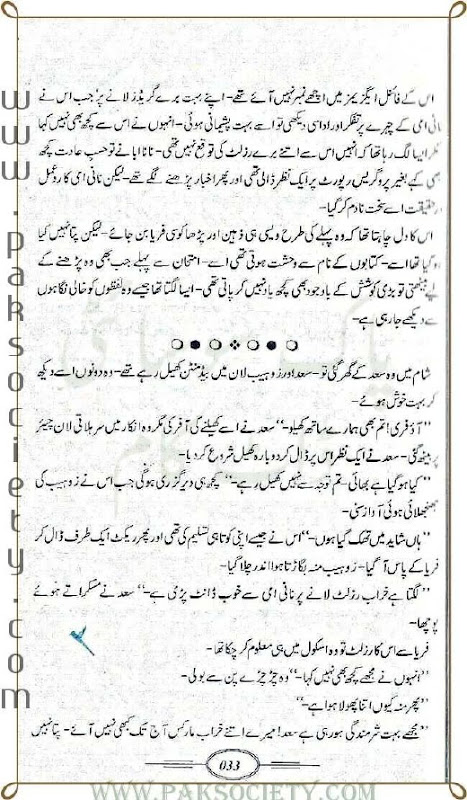 WWW.PAKSOCIETY.COM
اس کے فائنل ایگزیمز میں اچھے نمبر نہیں آئے تھے- اپنے بہت برے گریڈز لانے پر جب اس نے
نانی امی کے چہرے پر تفکر اور اداسی دیکھی تو اسے بہت پشیمانی ہوئی- انہوں نے اس سے کچھ بھی نہیں کہا
مگر ایسا لگ رہا تھا کہ انہیں اس سے اتنے برے رزلٹ کی توقع نہیں تھی- نانا ابا نے تو حسبِ عادت کچھ
بھی کہے بغیر پروگریس رپورٹ پر ایک نظر ڈالی تھی اور پھر اخبار پڑھنے لگے تھے- لیکن نانی امی کا ردعمل
درحقیقت اسے سخت نادم کر گیا-
اس کا دل چاہتا تھا کہ وہ پہلے کی طرح ویسی ہی ذہین اور پڑھا کو سی فریا بن جائے- لیکن پتا نہیں کیا
ہو گیا تھا اسے- کتابوں کے نام سے وحشت ہوتی تھی اسے- امتحان سے پہلے جب بھی وہ پڑھنے کے
لیے بیٹھتی تو بڑی کوشش کے باوجود بھی کچھ یاد نہیں کر پاتی تھی- ایسا لگتا تھا جیسے وہ لفظوں کو خالی نگاہوں
سے دیکھے جا رہی ہے-
شام میں وہ سعد کے گھر گئی تو- سعد اور زوہیب لان میں بیڈمنٹن کھیل رہے تھے- وہ دونوں اسے دیکھ
کر بہت خوش ہوئے-
”آؤ فری! تم بھی ہمارے ساتھ کھیلو-“ سعد نے اسے کھیلنے کی آفر کی مگر وہ انکار میں سر ہلاتی لان چیئر
پر بیٹھ گئی- سعد نے ایک نظر اس پر ڈال کر دوبارہ کھیل شروع کر دیا-
”کیا ہو گیا ہے بھائی- تم توجہ سے نہیں کھیل رہے-“ کچھ ہی دیر گزری ہوگی جب اس نے زوہیب کی
جھنجھلائی ہوئی آواز سنی-
”ہاں شاید میں تھک گیا ہوں-“ اس نے جیسے اپنی کوتاہی تسلیم کی تھی اور پھر ریکٹ ایک طرف ڈال کر
فریا کے پاس آ گیا- زوہیب منہ بگاڑتا ہوا اندر چلا گیا-
”لگتا ہے خراب رزلٹ لانے پر نانی امی سے خوب ڈانٹ پڑی ہے-“ سعد نے مسکراتے ہوئے
پوچھا-
فریا سے اس کا رزلٹ تو وہ اسکول میں ہی معلوم کر چکا تھا-
”انہوں نے مجھے کچھ بھی نہیں کہا-“ وہ چڑچڑے پن سے بولی-
”پھر منہ کیوں اتنا پھولا ہوا ہے-“
”مجھے بہت شرمندگی ہو رہی ہے سعد! میرے اتنے خراب مارکس آج تک کبھی نہیں آئے- پتا نہیں
033
www.paksociety.com
WWW.PAKSOCIETY.COM